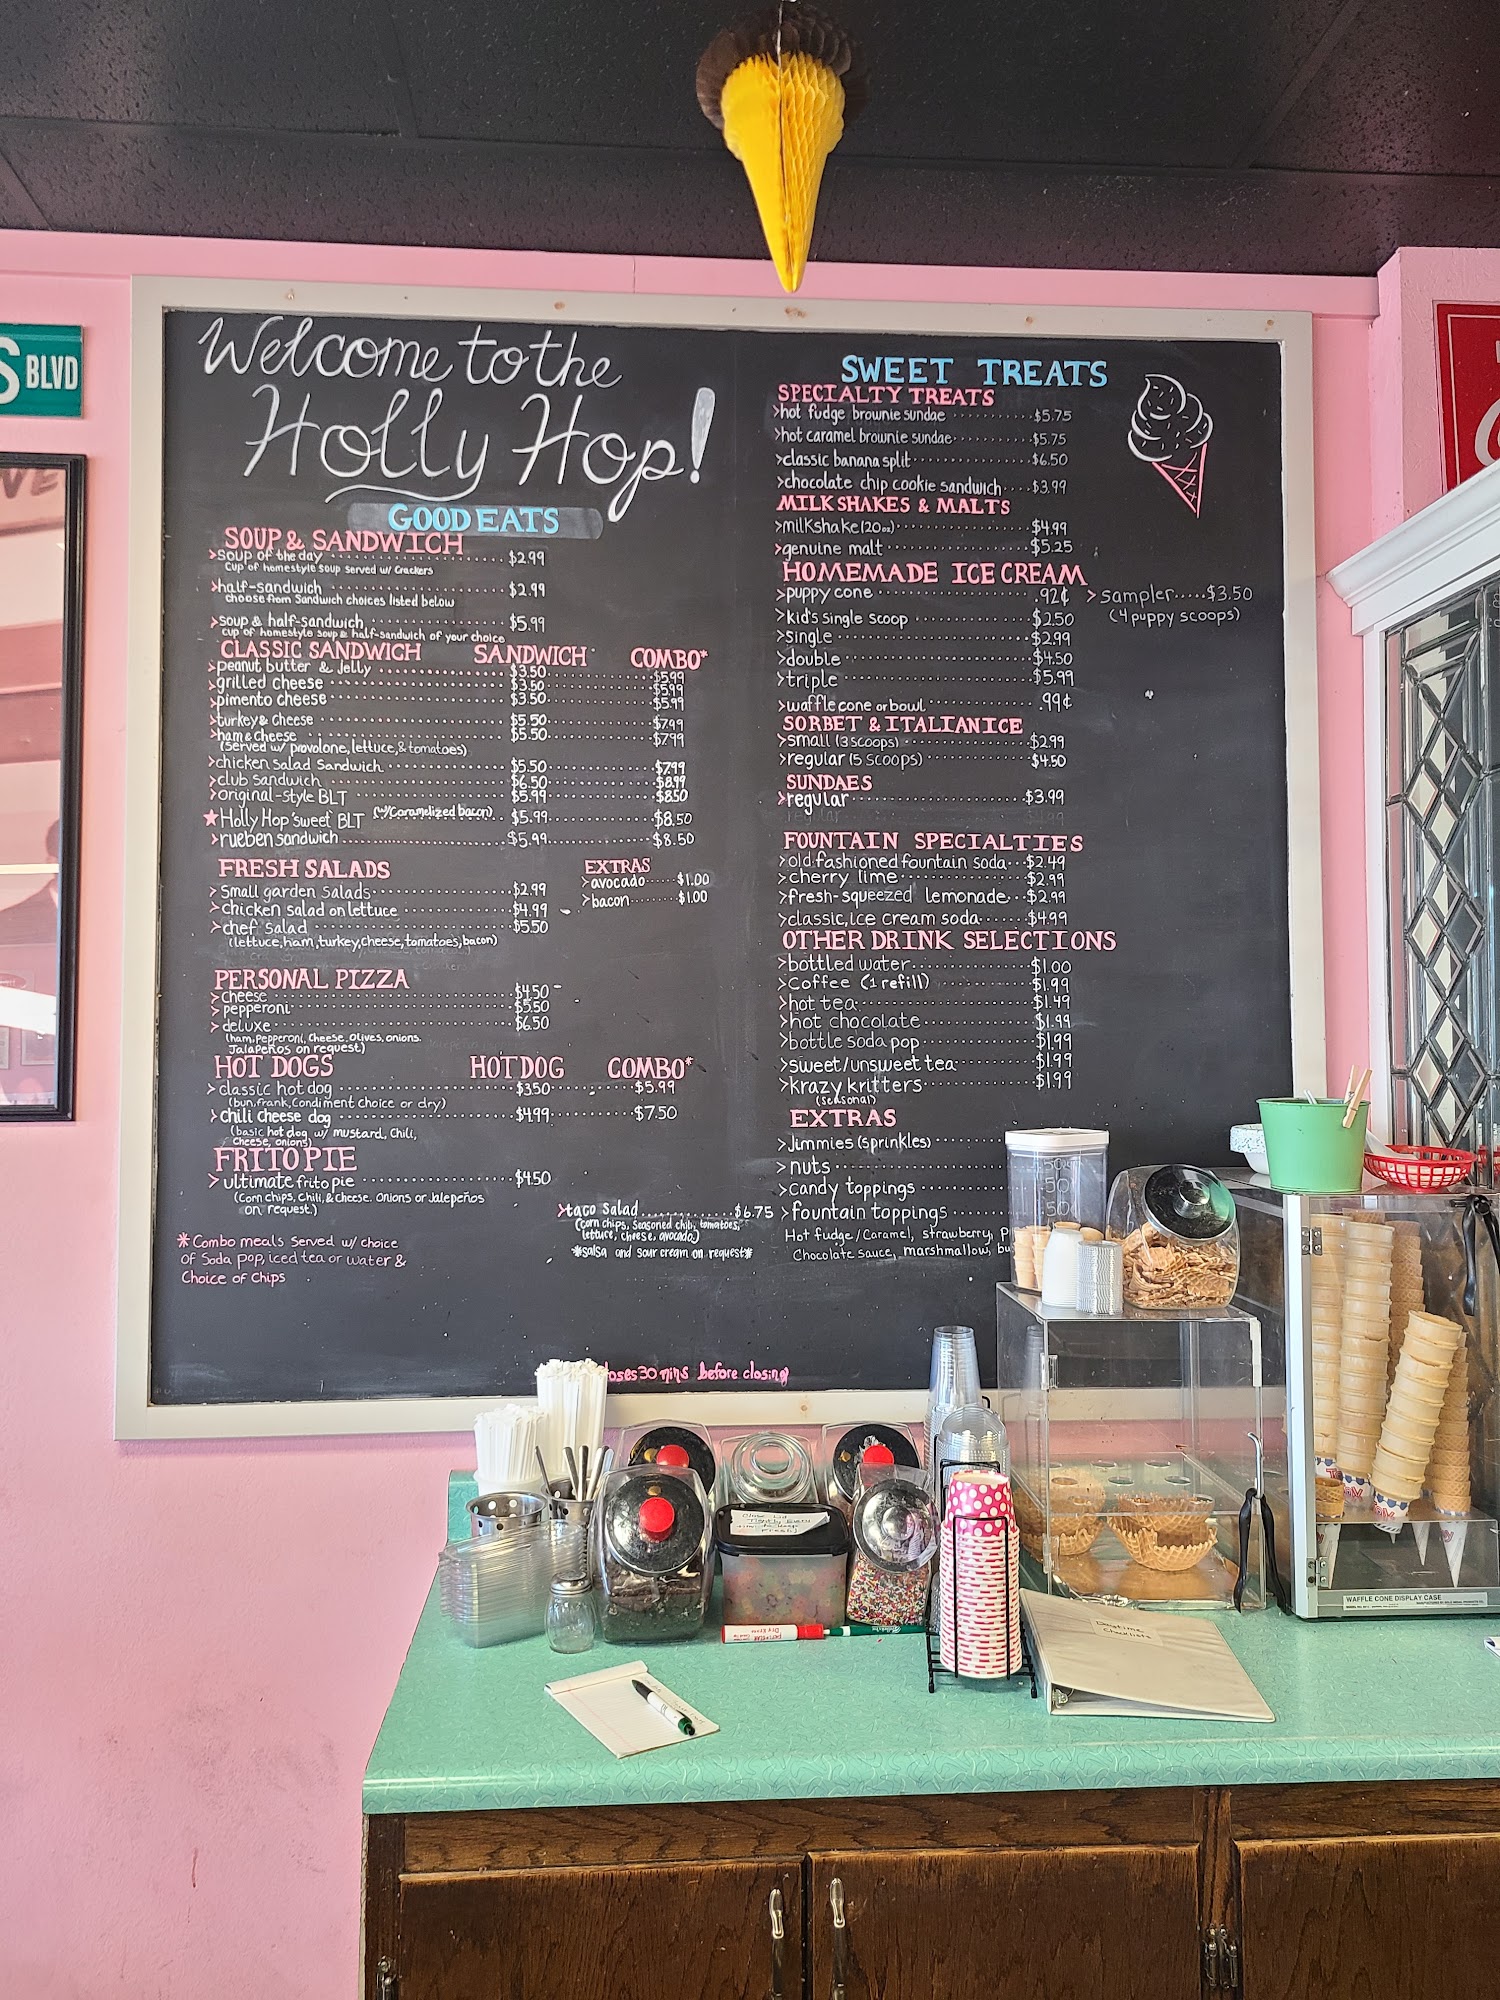 BLVD
Welcome to the
Holly Hop!
GOOD EATS
SOUP & SANDWICH
>soup of the day $2.99
Cup of homestyle soup served w/ crackers
>half-sandwich $2.99
choose from Sandwich choices listed below
>soup & half-sandwich $5.99
cup of homestyle soup & half-sandwich of your choice
CLASSIC SANDWICH SANDWICH COMBO*
>peanut butter & Jelly $3.50 $5.99
>grilled cheese $3.50 $5.99
>pimento cheese $3.50 $5.99
>turkey & cheese $5.50 $7.99
>ham & cheese $5.50 $7.99
(Served w/ provolone, lettuce, & tomatoes)
>chicken salad Sandwich $5.50 $7.99
>club sandwich $6.50 $8.99
>original-style BLT $5.99 $8.50
★Holly Hop "sweet" BLT (w/Caramelized bacon) $5.99 $8.50
>rueben sandwich $5.99 $8.50
FRESH SALADS
>Small garden salads $2.99
>Chicken salad on lettuce $4.99
>chef salad $5.50
(lettuce, ham, turkey, cheese, tomatoes, bacon)
EXTRAS
>avocado $1.00
>bacon $1.00
PERSONAL PIZZA
>cheese $4.50
>pepperoni $5.50
>deluxe $6.50
(ham, Pepperoni, Cheese, Olives, onions.
Jalapeños on request)
HOT DOGS HOT DOG COMBO*
>classic hot dog $3.50 $5.99
(bun, frank, Condiment choice or dry)
>chili cheese dog $4.99 $7.50
(basic hot dog w/ mustard, Chili,
Cheese, onions)
FRITO PIE
>ultimate frito pie $4.50
(Corn chips, Chili, & cheese. Onions or Jalepeños
on request.)
>taco salad $6.75
(Corn chips, Seasoned chili, tomatoes,
lettuce, cheese, avocado.)
*salsa and sour cream on request*
*Combo meals served w/ choice
Of Soda pop, iced tea or water &
Choice of Chips
30 mins before closing
SWEET TREATS
SPECIALTY TREATS
>hot fudge brownie sundae $5.75
>hot caramel brownie sundae $5.75
>classic banana split $6.50
>chocolate chip cookie sandwich $3.99
MILKSHAKES & MALTS
>milkshake (20oz) $4.99
>genuine malt $5.25
HOMEMADE ICE CREAM
>puppy cone .92¢
>sampler.....$3.50
(4 puppy scoops)
>kid's single scoop $2.50
>single $2.99
>double $4.50
>triple $5.99
>waffle cone or bowl .99¢
SORBET & ITALIAN ICE
>small (3 scoops) $2.99
>regular (5 scoops) $4.50
SUNDAES
>regular $3.99
FOUNTAIN SPECIALTIES
>old fashioned fountain soda $2.49
>cherry lime $2.99
>fresh-squeezed lemonade $2.99
>classic ice cream soda $4.99
OTHER DRINK SELECTIONS
>bottled water $1.00
>Coffee (1 refill) $1.99
>hot tea $1.49
>hot chocolate $1.99
>bottle soda pop $1.99
>sweet/unsweet tea $1.99
>krazy kritters $1.99
(seasonal)
EXTRAS
>Jimmies (sprinkles)
>nuts .50
>candy toppings .50
>fountain toppings .50
Hot fudge/Caramel, strawberry,
Chocolate sauce, marshmallow,
Daytime
Checklists
WAFFLE CONE DISPLAY CASE